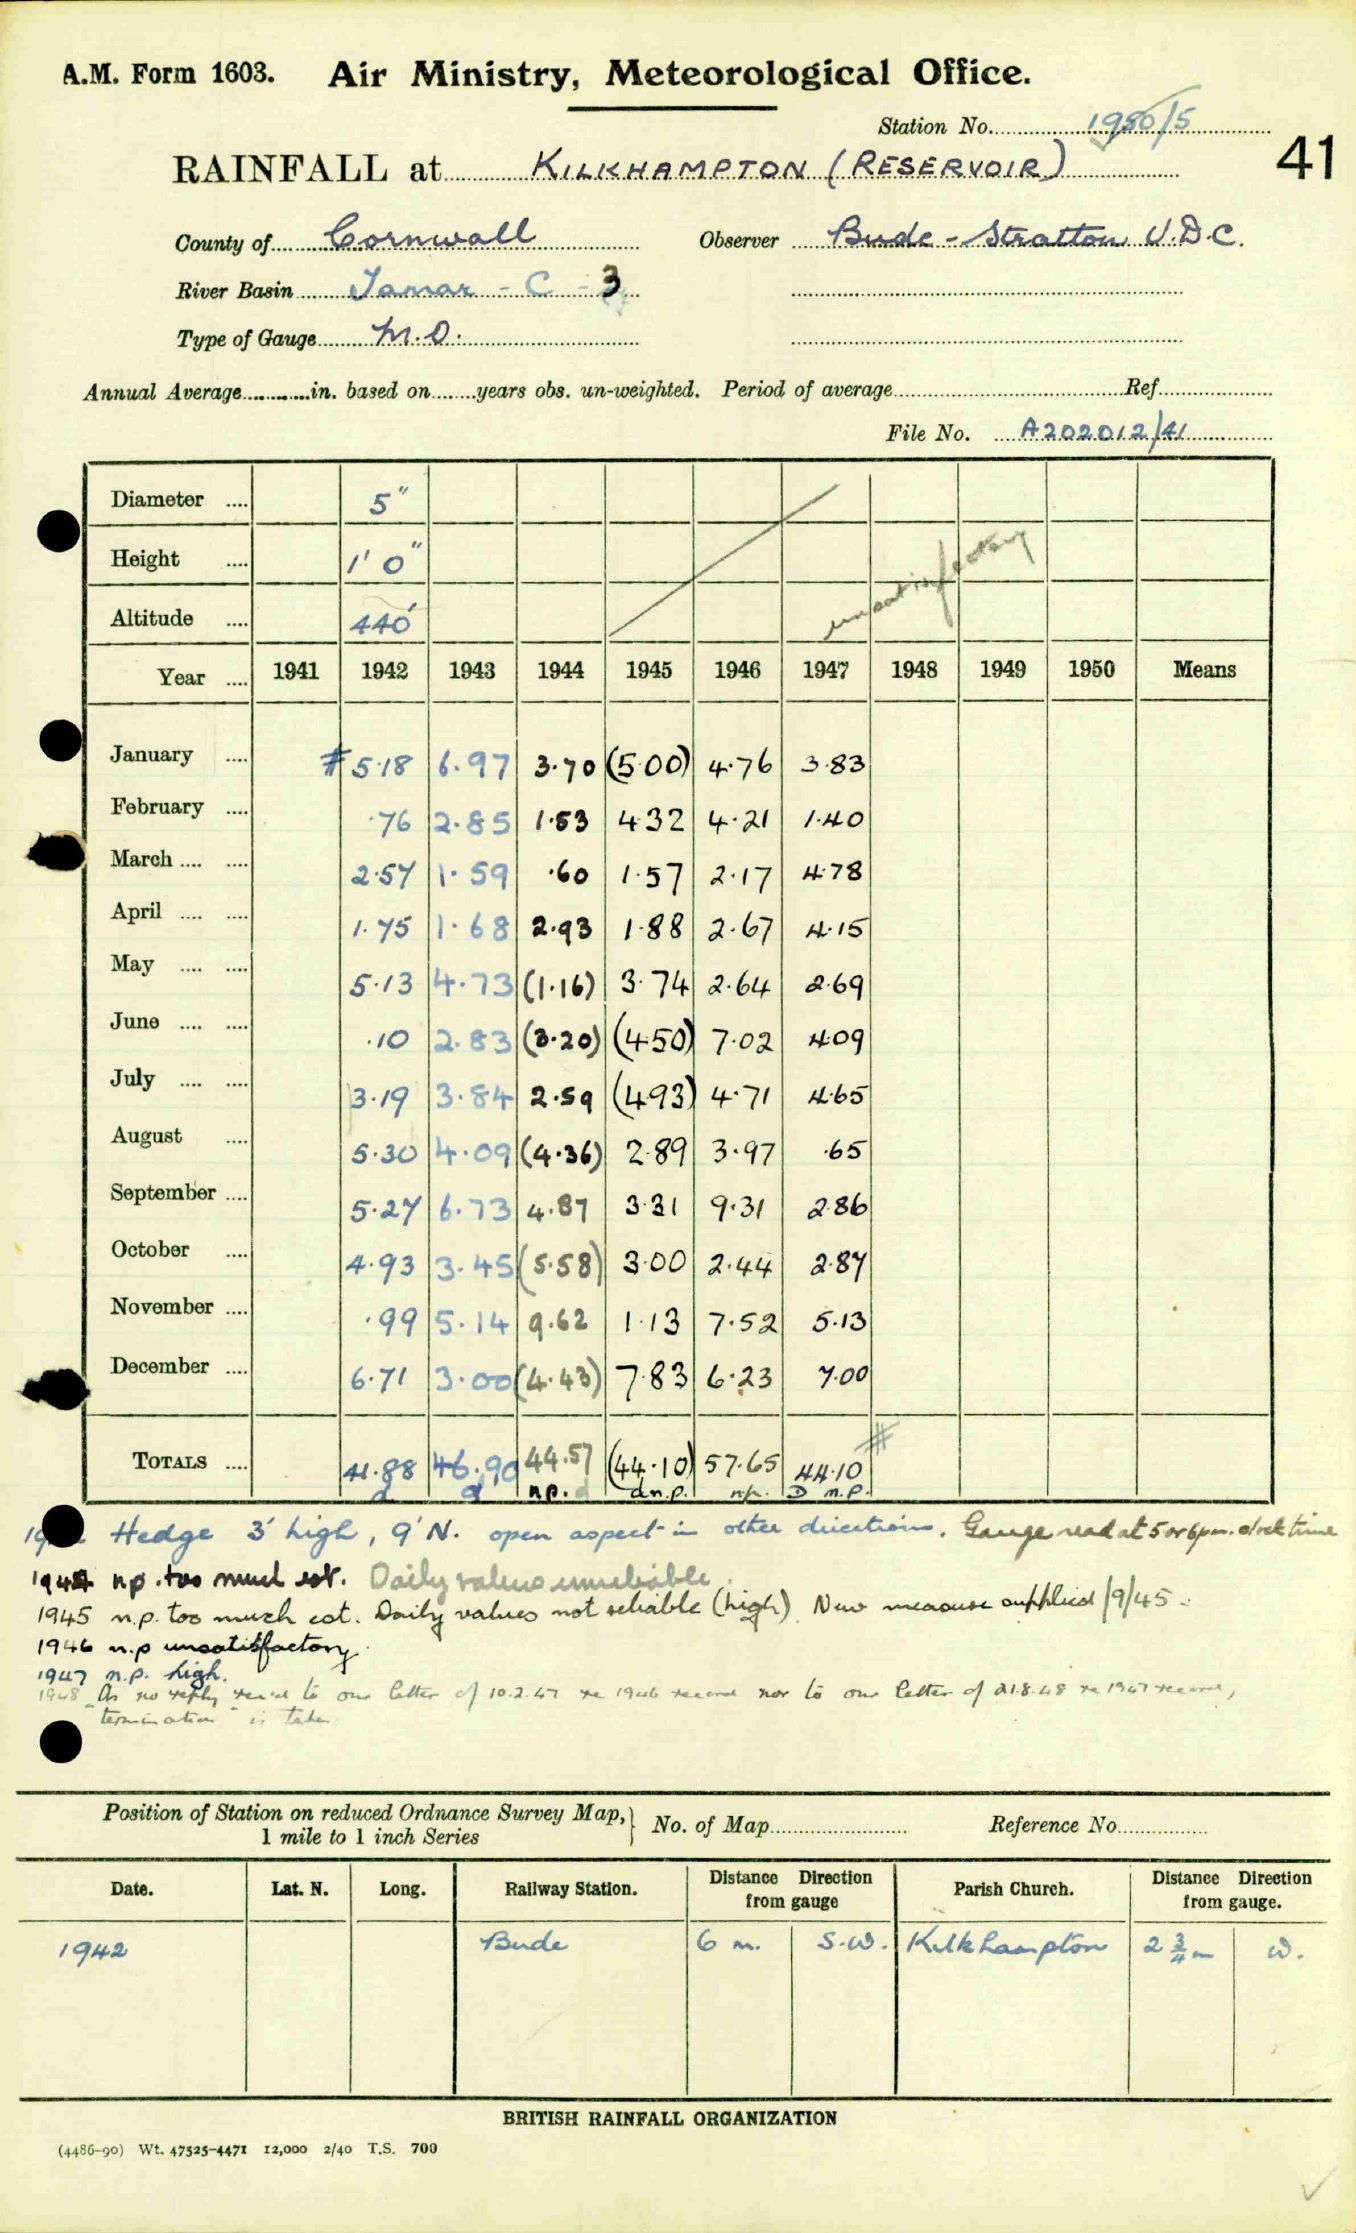 A.M. Form 1603. Air Ministry, Meteorological Office.
Station No. 1980/5
RAINFALL at KILKHAMPTON (RESERVOIR) 41
County of Cornwall Observer Bude - Stratton U.D.C.
River Basin Tamar - C - 3
Type of Gauge M.O.
Annual Average in. based on years obs. un-weighted. Period of average Ref
File No. A202012/41
Diameter 5"
Height 1' 0"
unsatisfactory
Altitude 440'
Year 1941 1942 1943 1944 1945 1946 1947 1948 1949 1950 Means
January # 5.18 6.97 3.70 (5.00) 4.76 3.83
February .76 2.85 1.53 4.32 4.21 1.40
March 2.57 1.59 .60 1.57 2.17 4.78
April 1.75 1.68 2.93 1.88 2.67 4.15
May 5.13 4.73 (1.16) 3.74 2.64 2.69
June .10 2.83 (3.20) (4.50) 7.02 4.09
July 3.19 3.84 2.59 (4.93) 4.71 4.65
August 5.30 4.09 (4.36) 2.89 3.97 .65
September 5.27 6.73 4.87 3.31 9.31 2.86
October 4.93 3.45 (5.58) 3.00 2.44 2.87
November .99 5.14 9.62 1.13 7.52 5.13
December 6.71 3.00 (4.43) 7.83 6.23 7.00
TOTALS 41.88 46.90 44.57 (44.10) 57.65 44.10 #
d d n.p. d d n.p. n.p. D n.p.
Hedge 3' high, 9' N. open aspect in other directions. Gauge read at 5 or 6pm. clock time
1944 n.p. too much est. Daily values unreliable.
1945 n.p. too much est. Daily values not reliable (high) New measure supplied 1/9/45.
1946 n.p unsatisfactory.
1947 n.p. high.
1948 As no reply rec'd to our letter of 10.2.47 re 1946 record nor to our letter of 21.8.48 re 1947 record,
"termination" is taken.
Position of Station on reduced Ordnance Survey Map, } No. of Map Reference No
1 mile to 1 inch Series
Date. Lat. N. Long. Railway Station. Distance Direction from gauge Parish Church. Distance Direction from gauge.
1942 Bude 6 m. S.W. Kilkhampton 2 3/4 m W.
BRITISH RAINFALL ORGANIZATION
(4486-90) Wt. 47525-4471 12,000 2/40 T.S. 700